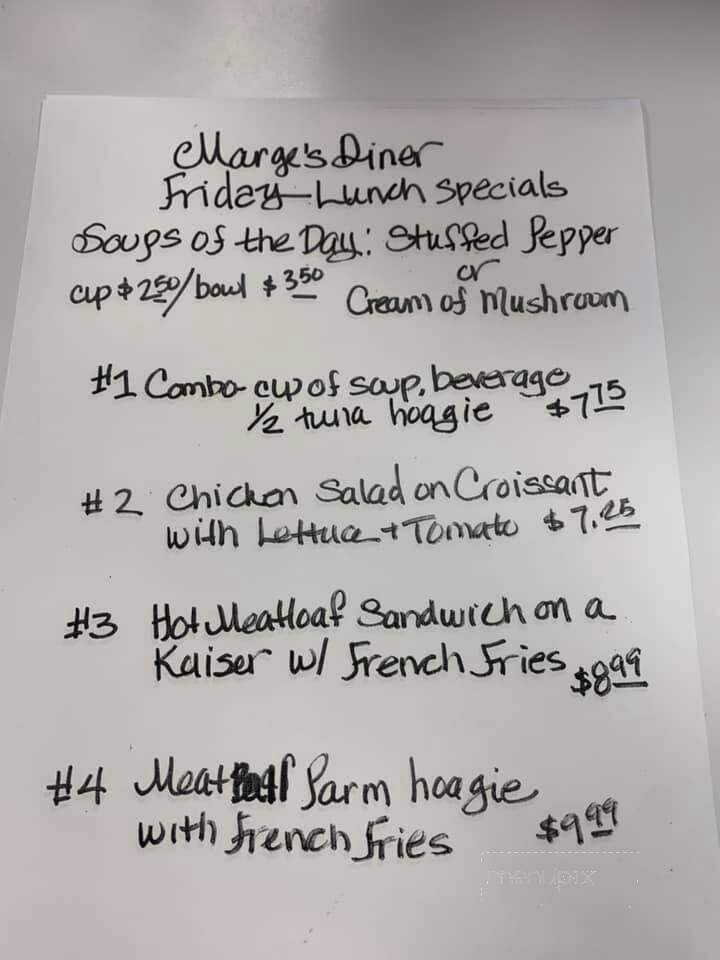 Marge's Diner
Friday-Lunch Specials
Soups of the Day: Stuffed Pepper
or
cup $2.50/bowl $3.50 Cream of Mushroom
#1 Combo-cup of soup, beverage
1/2 tuna hoagie $7.75
#2 Chicken Salad on Croissant
with Lettuce + Tomato $7.25
#3 Hot Meatloaf Sandwich on a
Kaiser w/ French Fries $8.99
#4 Meatball Parm hoagie
with French Fries $9.99
menupix